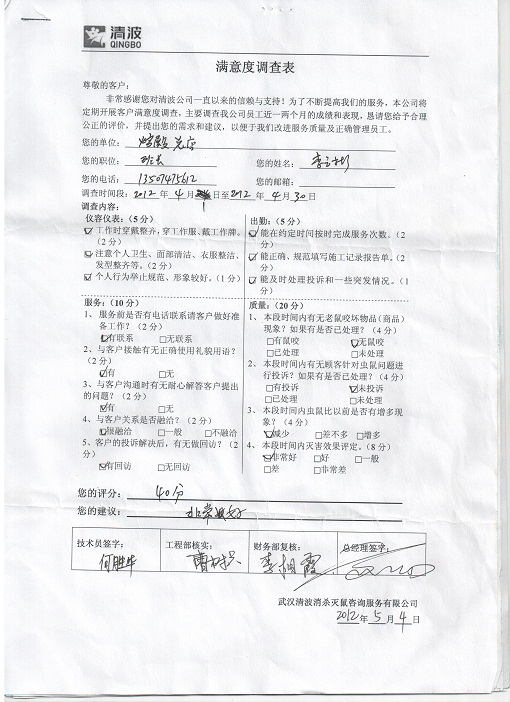 清波
QINGBO
满意度调查表
尊敬的客户：
非常感谢您对清波公司一直以来的信赖与支持！为了不断提高我们的服务，本公司将
定期开展客户满意度调查，主要调查我公司员工近一两个月的成绩和表现，恳请您给予合理
公正的评价，并提出您的需求和建议，以便于我们改进服务质量及正确管理员工。
您的单位：
您的职位： 您的姓名：
您的电话： 13507475612 您的邮箱：
调查时间段：2012 年 4 月 日至2012 年 4 月 30 日
调查内容：
仪容仪表：（5 分）
☑工作时穿戴整齐，穿工作服、戴工作牌。
（2 分）
☑注意个人卫生、面部清洁、衣服整洁、
发型整齐等。（2 分）
☑个人行为举止规范、形象较好。（1 分）
出勤：（5 分）
☑能在约定时间按时完成服务次数。（2
分）
☑能正确、规范填写施工记录报告单。（2
分）
☑能及时处理投诉和一些突发情况。（1
分）
服务：（10 分）
1、服务前是否有电话联系请客户做好准
备工作？（2 分）
☑有联系 □无联系
2、与客户接触有无正确使用礼貌用语？
（2 分）
☑有 □无
3、与客户沟通时有无耐心解答客户提出
的问题？（2 分）
☑有 □无
4、与客户关系是否融洽？（2 分）
☑很融洽 □一般 □不融洽
5、客户的投诉解决后，有无做回访？（2
分）
☑有回访 □无回访
质量：（20 分）
1、本段时间内有无老鼠咬坏物品（商品）
现象？如果有是否已处理？（4 分）
□有鼠咬 ☑无鼠咬
□已处理 □未处理
2、本段时间内有无顾客针对虫鼠问题进
行投诉？如果有是否已处理？（4 分）
□有投诉 ☑未投诉
□已处理 □未处理
3、本段时间内虫鼠比以前是否有增多现
象？（4 分）
☑减少 □差不多 □增多
4、本段时间内灭害效果评定。（8 分）
☑非常好 □好 □一般
□差 □非常差
您的评分： 40分
您的建议： 非常好
技术员签字： 工程部核实： 财务部复核： 总经理签字：
何胜华 李相霞
武汉清波消杀灭鼠咨询服务有限公司
2012 年 5 月 4 日